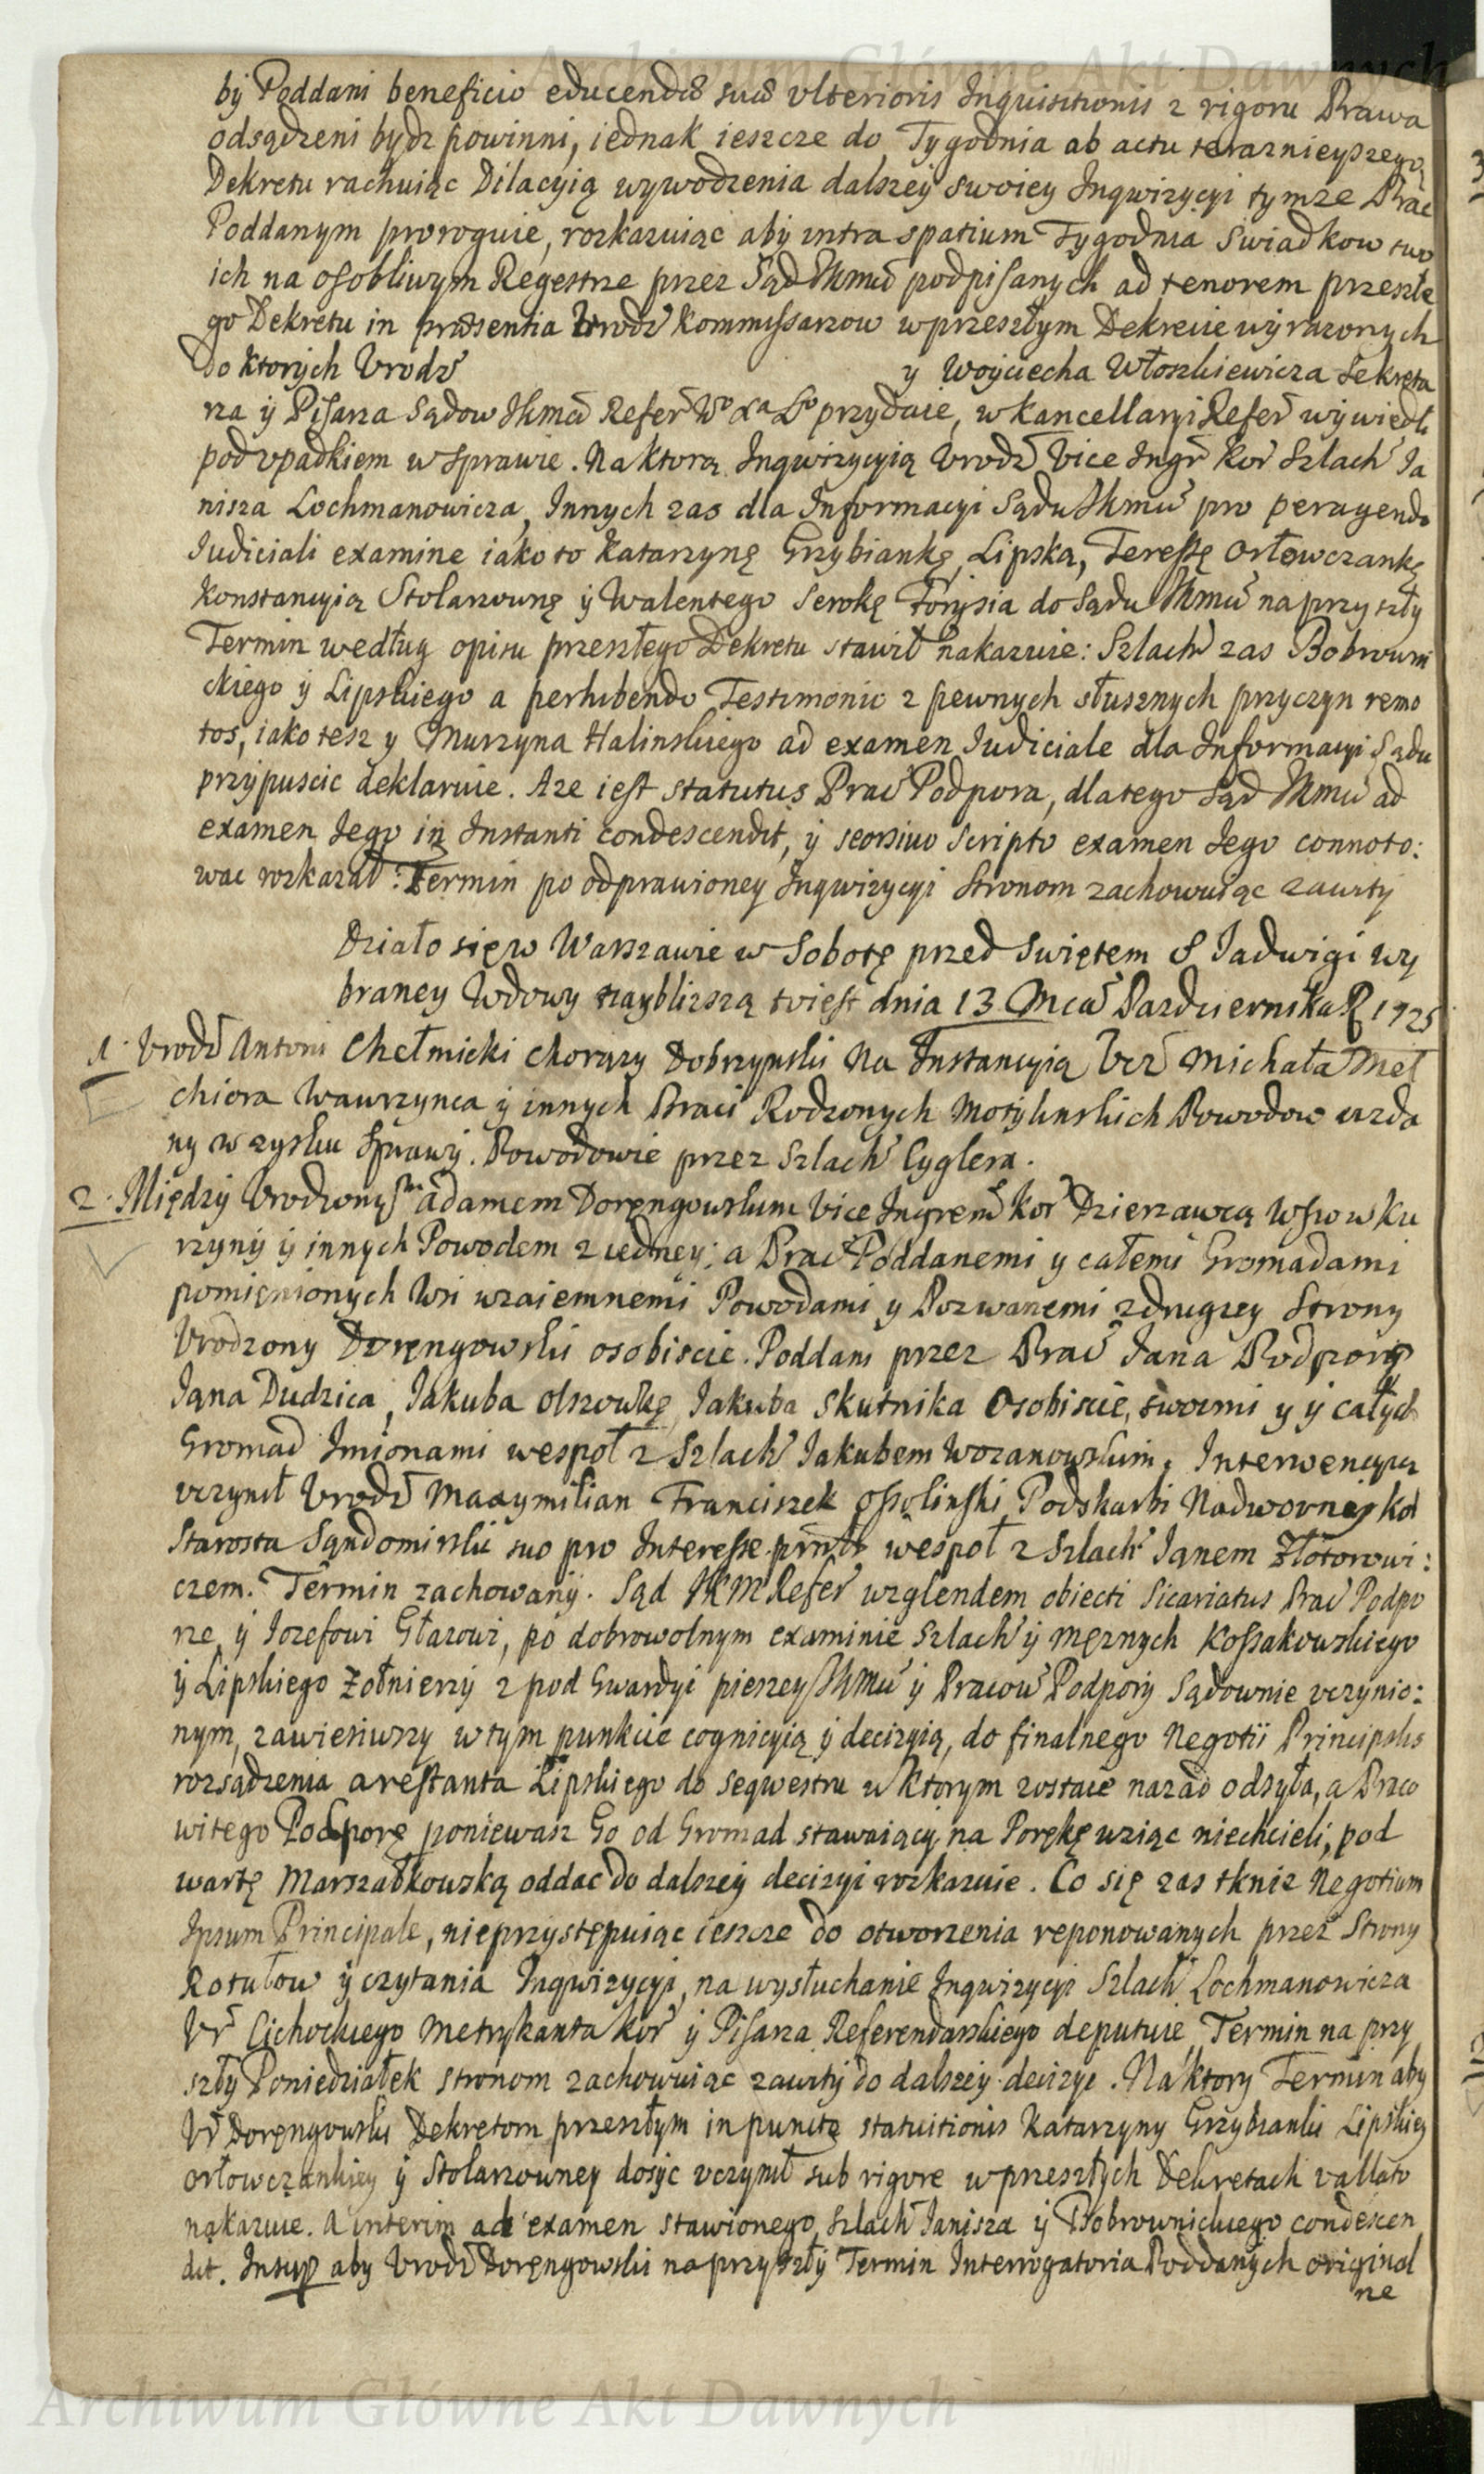 Archiwum Główne Akt Dawnych
by Poddani beneficio educendæ suæ ulterioris Inquisitionis z rigoru Prawa
odsądzeni bydz powinni, iednak ieszcze do Tygodnia ab actu teraznieyszego
Dekretu rachuiąc Dilacyią wywodzenia dalszey swoiey Inqwizycyi tymze Prac
Poddanym proroguie, rozkazuiąc aby intra spatium Tygodnia Swiadkow swo
ich na osobliwym Regestrze przez Sąd JKMci podpisanych ad tenorem przeszłe
go Dekretu in præsentia Urodz Kommissarzow w przeszłym Dekrecie wyrazonych
do ktorych Urodz y Woyciecha Włoszkiewicza Sekreta
rza y Pisarza Sądow JKMci Refer Wo Xa Lo przydaie, w Kancellaryi Refer wywiedli
pod upadkiem w Sprawie. Na ktorą Inqwizycyią Urodz Vice Ingr Kor Szlach Ja
nisza Lochmanowicza, Innych zas dla Informacyi Sądu JKMci pro peragendo
Judiciali examine iako to Katarzynę Grzybiankę, Lipską, Teressę Orłowczankę
Konstancyią Stolarzownę y Walentego Serokę Forysia do Sądu JKMci na przyszły
Termin według opisu przeszłego Dekretu stawił nakazuie: Szlach zas Bobrowni
ckiego y Lipskiego a perhibendo Testimonio z pewnych słusznych przyczyn remo
tos, iako tesz y Murzyna Halinskiego ad examen Judiciale dla Informacyi Sądu
przypuscic deklaruie. Aze iest statutus Prac Podpora, dlatego Sąd JKMci ad
examen Jego in Instanti condescendit, y seorsivo Scripto examen Jego connoto:
wac rozkazał. Termin po odprawioney Inqwizycyi Stronom zachowuiąc zawity
Działo się w Warszawie w Sobotę przed Swiętem S Jadwigi wy
braney Wdowy naybliszą to iest dnia 13 Mca Pazdziernika R 1725
1. Urodz Antoni Chełmicki Chorązy Dobrzynski Na Instancyią Ur Michała Mel
chiora Wawrzynca y innych Braci Rodzonych Motylinskich Powodow wzda
ny w zysku Sprawy. Powodowie przez Szlach Cyglera.
2. Między Urodzonym Adamem Doręngowskim Vice Ingrem Kor Dzierzawcą Wsiow Ku
rzyny y innych Powodem z iedney; a Prac Poddanemi y całemi Gromadami
pomięnionych Wsi wzaiemnemi Powodami y Pozwanemi z drugiey Strony
Urodzony Doręngowski osobiscie. Poddani przez Prac Jana Podporę
Jana Dudzica, Jakuba Olszowkę, Jakuba Skutnika Osobiscie, swoimi y y całych
Gromad Imionami wespoł z Szlach Jakubem Wozanowskim. Interwencyią
uczynił Urodz Maxymilian Franciszek Ossolinski Podskarbi Nadworny Kor
Starosta Sandomirski suo pro Interesse wespoł z Szlach Janem Złotorowi:
czem. Termin zachowany. Sąd JKM Refer wzglendem obiecti Sicariatus Prac Podpo
rze, y Jozefowi Głazowi, po dobrowolnym examinie Szlach y męznych Kossakowskiego
y Lipskiego Zołnierzy z pod Gwardyi pieszey JKMci y Pracow Podpory Sądownie uczynio:
nym, zawiesiwszy w tym punkcie cognicyią y decizyią, do finalnego Negotii Principalis
rozsądzenia arestanta Lipskiego do seqwestru w ktorym zostaie nazad odsyła, a Praco
witego Podporę poniewasz Go od Gromad stawaiący na Porękę wziąc niechcieli, pod
wartę Marszałkowską oddac do dalszey decizyi rozkazuie. Co się zas tknie Negotium
Ipsum Principale, nieprzystępuiąc ieszcze do otworzenia reponowanych przez Strony
Rotułow y czytania Inqwizycyi, na wysłuchanie Inqwizycyi Szlach Lochmanowicza
Ur Cichockiego Metrykanta Kor y Pisarza Referendarskiego deputuie, Termin na przy
szły Poniedziałek stronom zachowuiąc zawity do dalszey decizyi. Na ktory Termin aby
Ur Doręngowski Dekretom przeszłym in puncto statuitionis Katarzyny Grzybianki Lipskiey
Orłowczankiey y Stolarzowney dosyc uczynił sub rigore w przeszłych Dekretach vallato
nakazuie. A interim ad examen stawionego Szlach Janisza y Bobrownickiego condescen
dit. Insup aby Urodz Doręngowski na przyszły Termin Interrogatoria Poddanych original
ne
Archiwum Główne Akt Dawnych